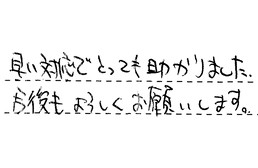 早い対応でとっても助かりました.
今後もよろしくお願いします。